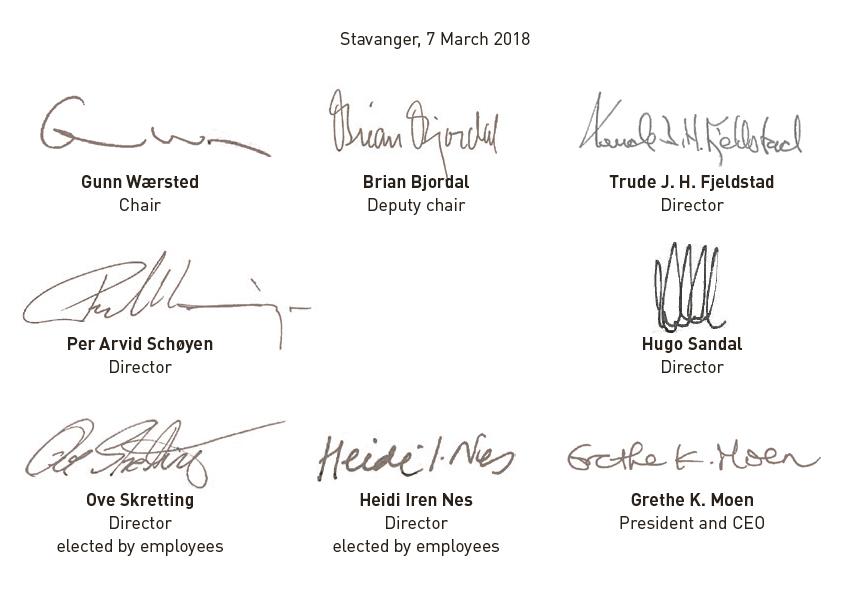 Stavanger, 7 March 2018
Brian Bjordal
Gunn Wærsted
Chair
Brian Bjordal
Deputy chair
Trude J. H. Fjeldstad
Trude J. H. Fjeldstad
Director
Per Arvid Schøyen
Director
Hugo Sandal
Director
Ove Skretting
Heidi I. Nes
Grethe K. Moen
Ove Skretting
Director
elected by employees
Heidi Iren Nes
Director
elected by employees
Grethe K. Moen
President and CEO